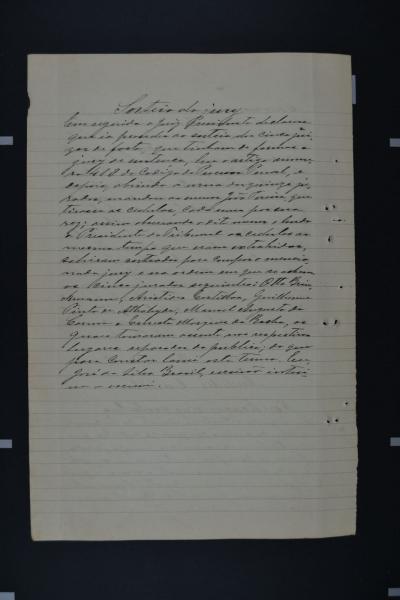 Sorteio do jury
Em seguida o Juiz Presidente declarou
que ia proceder ao sorteio dos cinco jui-
zes de facto, que tinham de formar o
jury de sentença, leu o artigo nume-
ro do Codigo do Processo Penal, e
depois, abrindo a urna das quinze ju-
rados, mandou ao menor João que
tirasse as cedulas, cada uma por sua
vez; assim o dito menor e lendo
o Presidente do Tribunal as cedulas ao
mesmo tempo que eram extrahidas,
sahiram sorteados para compor o mencio-
nado jury e na ordem em que se acham
os cinco jurados seguintes: Otto
Aristides Guilherme
Pinto de Manoel Augusto de
e Ernesto Marques da Rocha, os
quaes tomaram assento nos respectivos
lugares separados do publico, do que
para constar lavrei este termo. Eu,
José da Silva Brasil, escrivão interi-
no o escrevi.